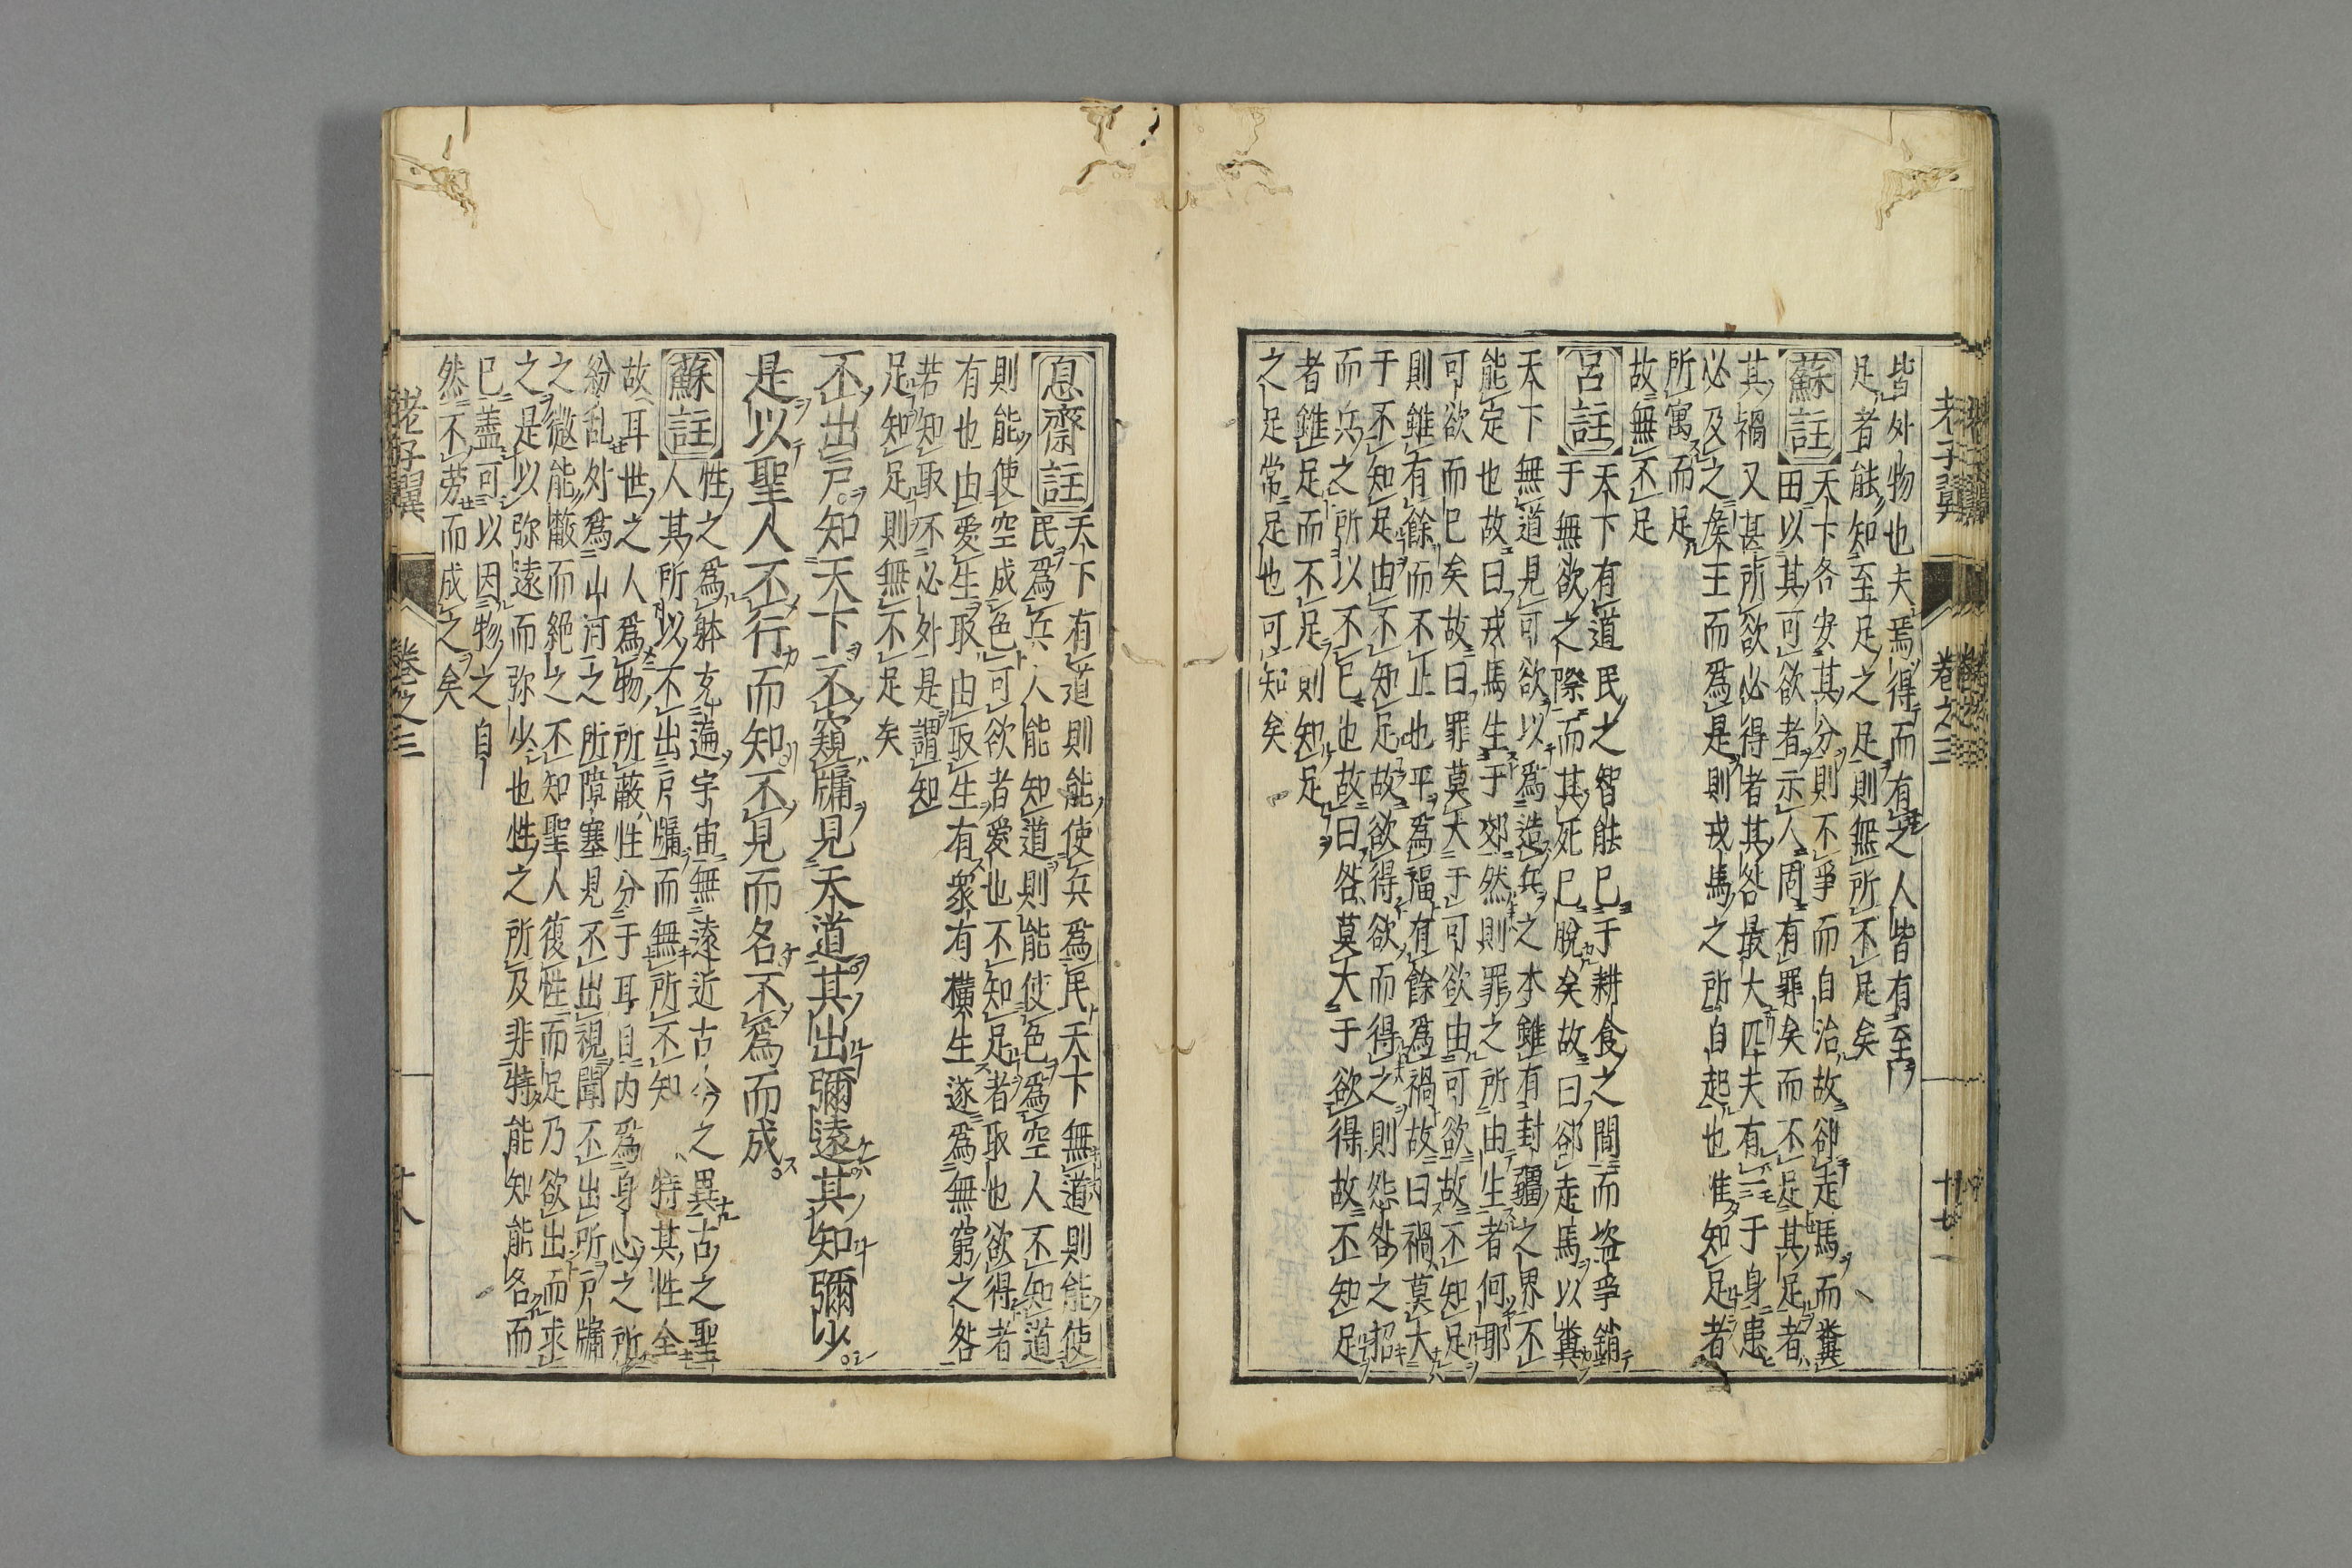 皆外物也夫焉得而有之人皆有至
足者能知至足之足則無所不足矣
蘇註
天下各安其分則不爭而自治故卻走馬而糞
田以其可欲者示人固有罪矣而不足其足者
其禍又甚所欲必得者其咎最大匹夫有一于身患
必及之矦王而爲是則戎馬之所自起也惟知足者
所寓而足
故無不足
呂註
天下有道民之智能已于耕食之間而盜爭銷
于無欲之際而其死已脫矣故曰卻走馬以糞
天下無道見可欲以爲造兵之本雖有封疆之界不
能定也故曰戎馬生于郊然則罪之所由生者何耶
可欲而已矣故曰罪莫大于可欲由可欲故不知足
則雖有餘而不止也平爲福有餘爲禍故曰禍莫大
于不知足由不知足故欲得欲而得之則怨咎之招
而兵之所以不已也故曰咎莫大于欲得故不知足
者雖足而不足則知足
之足常足也可知矣
老子翼 卷之三 十七
息齋註
天下有道則能使兵爲民天下無道則能使
民爲兵人能知道則能使色爲空人不知道
則能使空成色可欲者愛也不知足者取也欲得者
有也由愛生取由取生有衆有橫生遂爲無窮之咎
若知取不必外是謂知
足知足則無不足矣
不出戶知天下不窺牖見天道其出彌遠其知彌少
是以聖人不行而知不見而名不爲而成
蘇註
性之爲躰充遍宇宙無遠近古今之異古之聖
人其所以不出戶牖而無所不知特其性全
故耳世之人爲物所蔽性分于耳目内爲身心之所
紛乱外爲山河之所障塞見不出視聞不出所戶牖
之微能蔽而絶之不知聖人復性而足乃欲出而求
之是以弥遠而弥少也性之所及非特能知能名而
已盡可以因物之自
然不劳而成之矣
老子翼 卷之三 十八